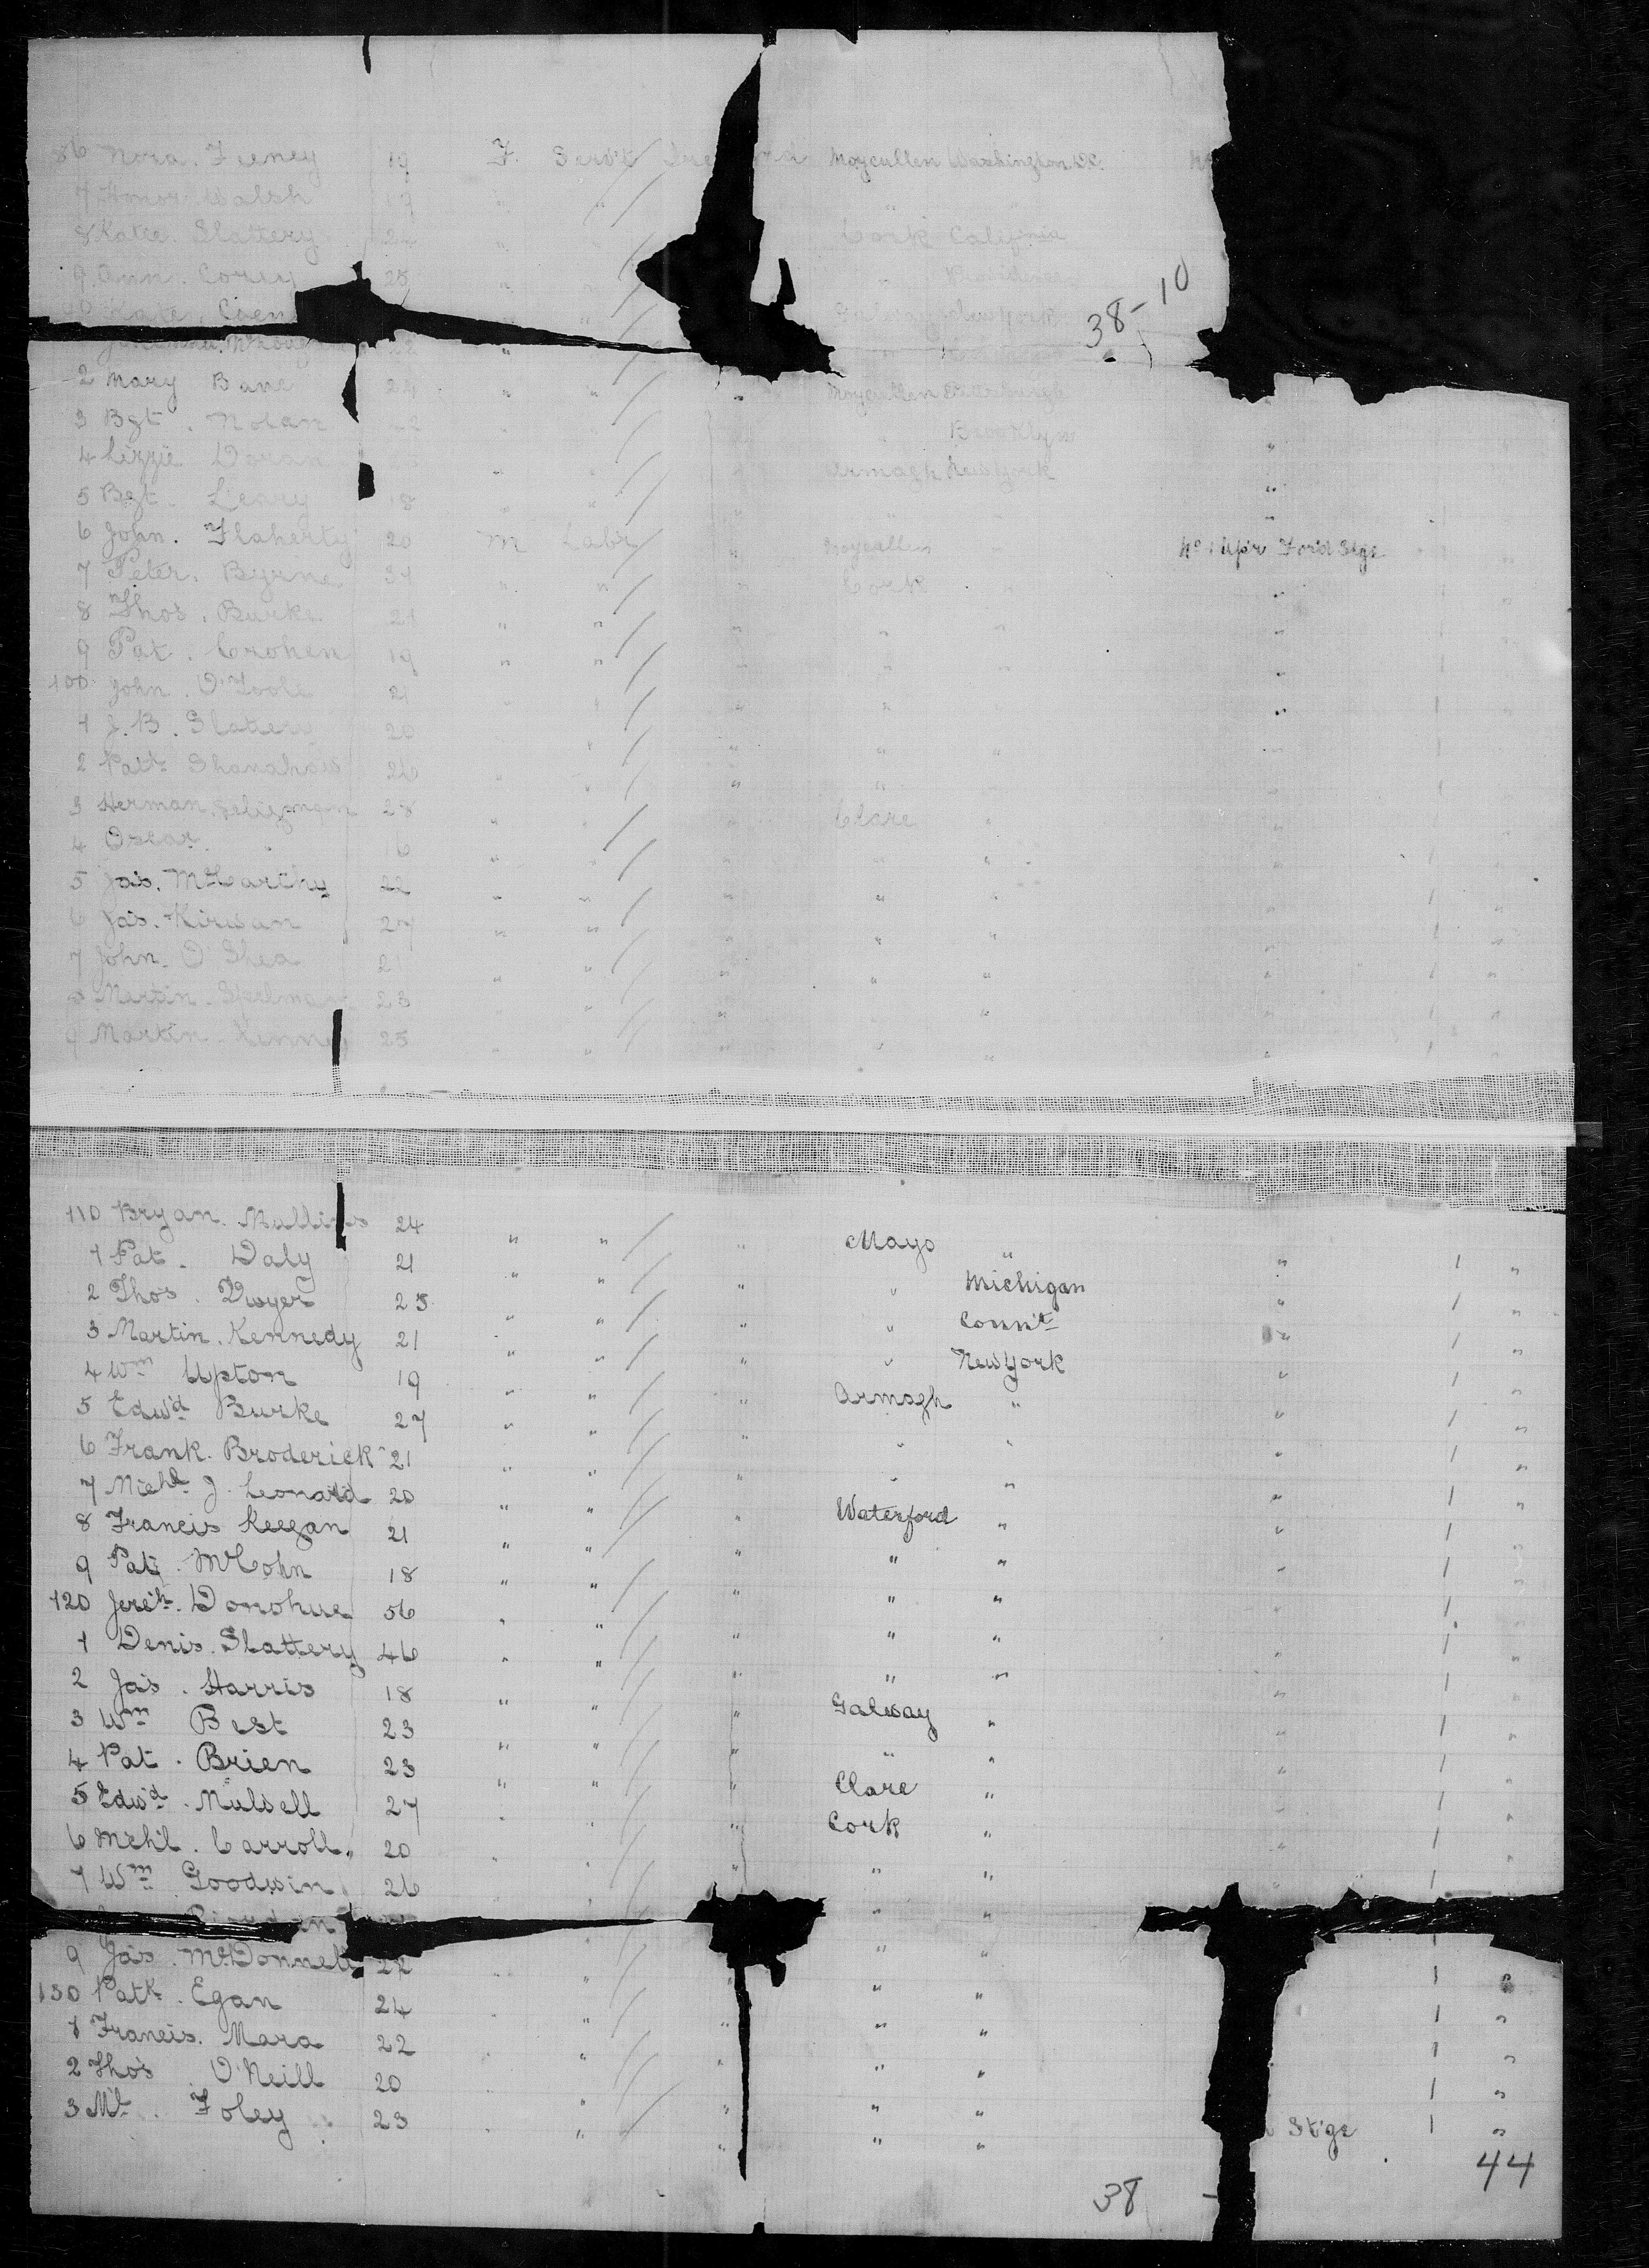 86 Nora. Feeney 19 F. Servt Moycullen Washington D.C.
7 Honor Walsh 19 " " "
8 Katie. Slattery 24 " " Cork California
9 Ann. Corey 25 " " " Providence
Kate. " " Galway New York
38-10
22 "
2 Mary Bane 24 " " " Moycullen Pittsburgh "
3 Bgt. Nolan 22 " " " " Brooklyn "
4 Lizzie Doran " " " Armagh New York "
5 Bgt. Leary 18 " " " " "
6 John. Flaherty 20 M Labr " Moycullen " No 1 Up'r For'd Stge "
7 Peter. Byrne 31 " " " Cork " " "
8 Thos. Burke 21 " " " " " " "
9 Pat. Crohen 19 " " " " " " "
100 John. O'Toole 21 " " " " " 1 "
1 J.B. Slattery 20 " " " " " " 1 "
2 Patk Shanahan 26 " " " " " 1 "
3 Herman. Seligman 28 " " " Clare " " 1 "
4 Oscar. " 16 " " " " " " 1 "
5 Jas. McCarthy 22 " " " " " " 1 "
6 Jas. Kirwan 27 " " " " " " 1 "
7 John. O'Shea 21 " " " " " " 1 "
8 Martin. Spelman 23 " " " " " " 1 "
9 Martin. 25 " " " " " 1 "
110 Bryan. Mullins 24 " " " Mayo " " 1 "
1 Pat. Daly 21 " " " " Michigan " 1 "
2 Thos. Dwyer 25 " " " " Connt " 1 "
3 Martin. Kennedy 21 " " " " New York " 1 "
4 Wm Upton 19 " " " Armagh " " 1 "
5 Edwd Burke 27 " " " " " " 1 "
6 Frank. Broderick 21 " " " " " " 1 "
7 Michl J. Leonard 20 " " " Waterford " " 1 "
8 Francis Keegan 21 " " " " " " 1 "
9 Pat. McCohn 18 " " " " " " 1 "
120 Jereh. Donohue 56 " " " " " " 1 "
1 Denis. Slattery 46 " " " " " " 1 "
2 Jas. Harris 18 " " " Galway " " 1 "
3 Wm Best 23 " " " " " " 1 "
4 Pat. Brien 23 " " " Clare " " 1 "
5 Edwd. Mulsell 27 " " " Cork " " 1 "
6 Mchl. Carroll 20 " " " " " " 1 "
7 Wm Goodwin 26 " " " "
9 Jas. McDonnell 22 " " " " " 1 "
130 Patk. Egan 24 " " " " " 1 "
1 Francis. Mara 22 " " " " " 1 "
2 Thos O'Neill 20 " " " " " 1 "
3 Mt. Foley 23 " " " " " Stge 1 "
44
38 -